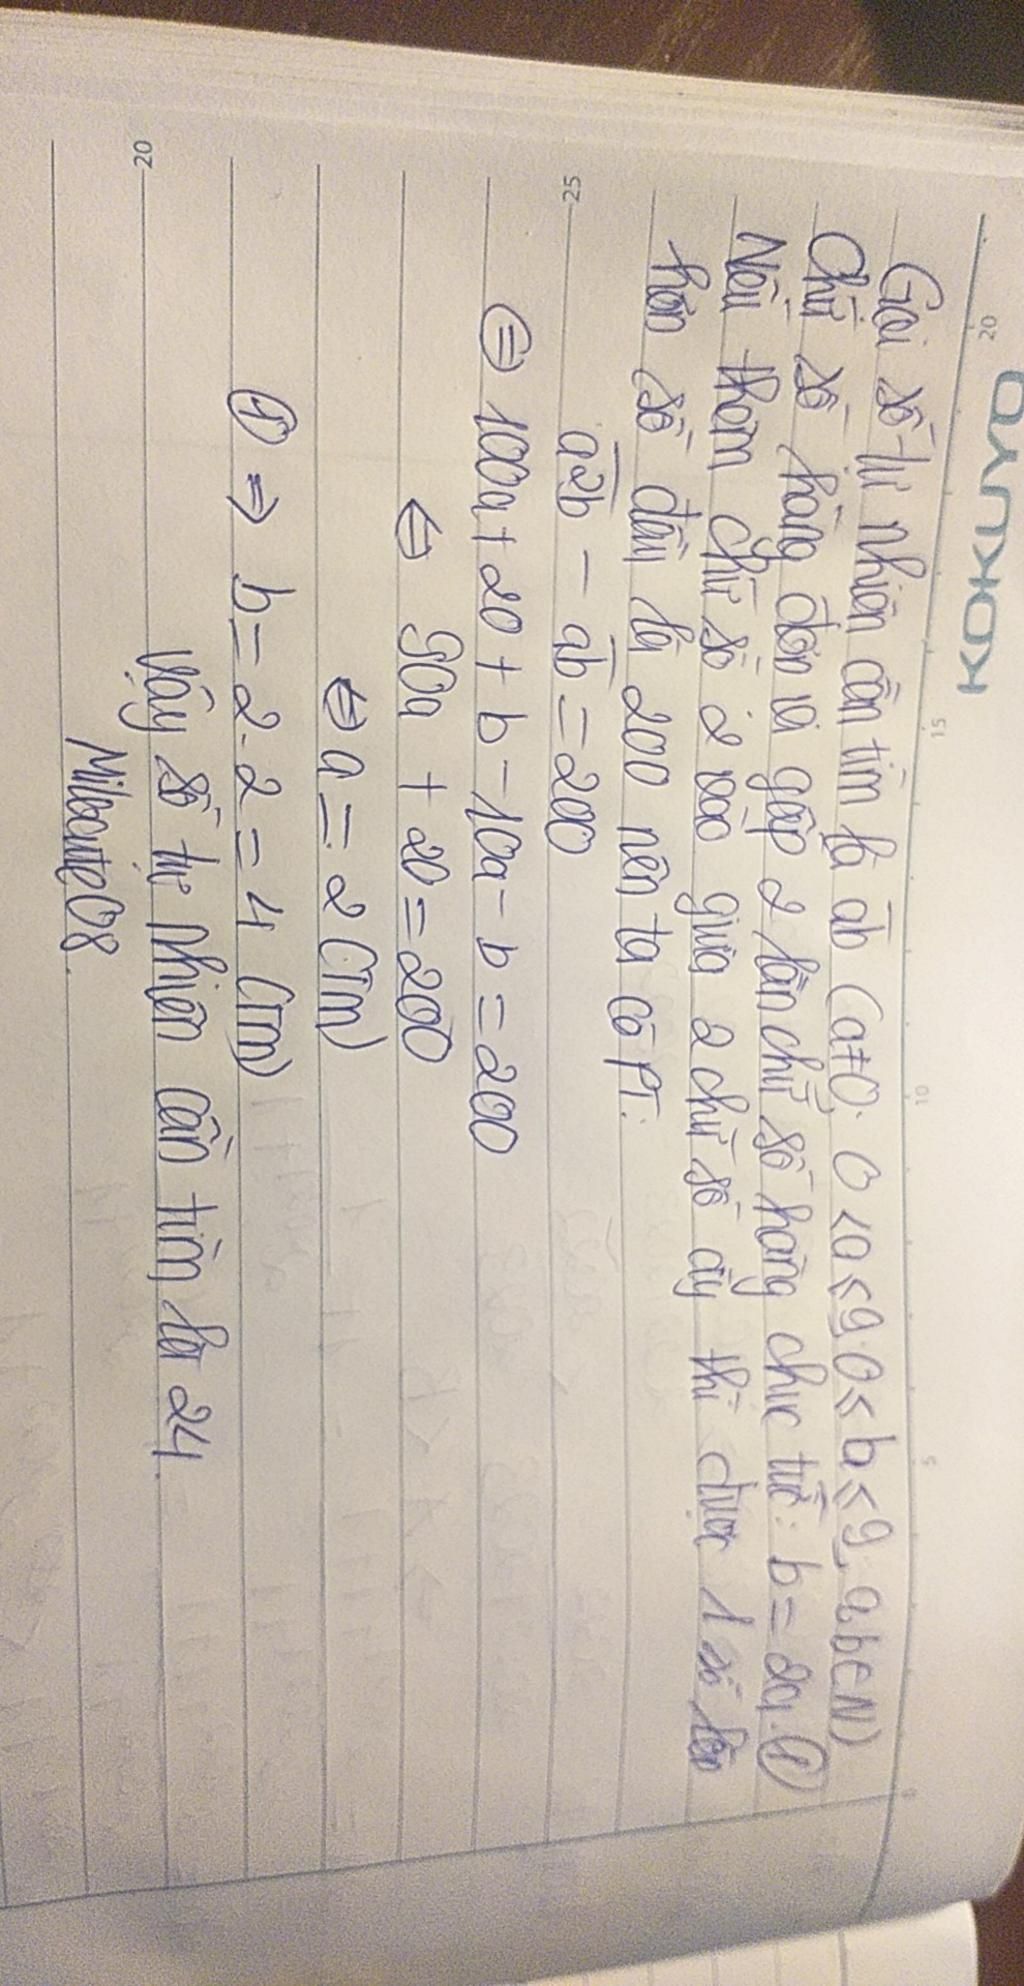 KOKUYO
20 15 10 5 0
Gọi số tự nhiên cần tìm là ab̅ (a≠0, 0<a≤9, 0≤b≤9, a,b∈N)
Chữ số hàng đơn vị gấp 2 lần chữ số hàng chục tức: b = 2a. ①
Nếu thêm chữ số 2 vào giữa 2 chữ số ấy thì được 1 số lớn
hơn số đầu là 200 nên ta có PT:
25
a2b̅ - ab̅ = 200
⇔ 100a + 20 + b - 10a - b = 200
⇔ 90a + 20 = 200
⇔ a = 2 (Tm)
① ⇒ b = 2.2 = 4 (Tm)
20
Vậy số tự nhiên cần tìm là 24.
Milocutie08.